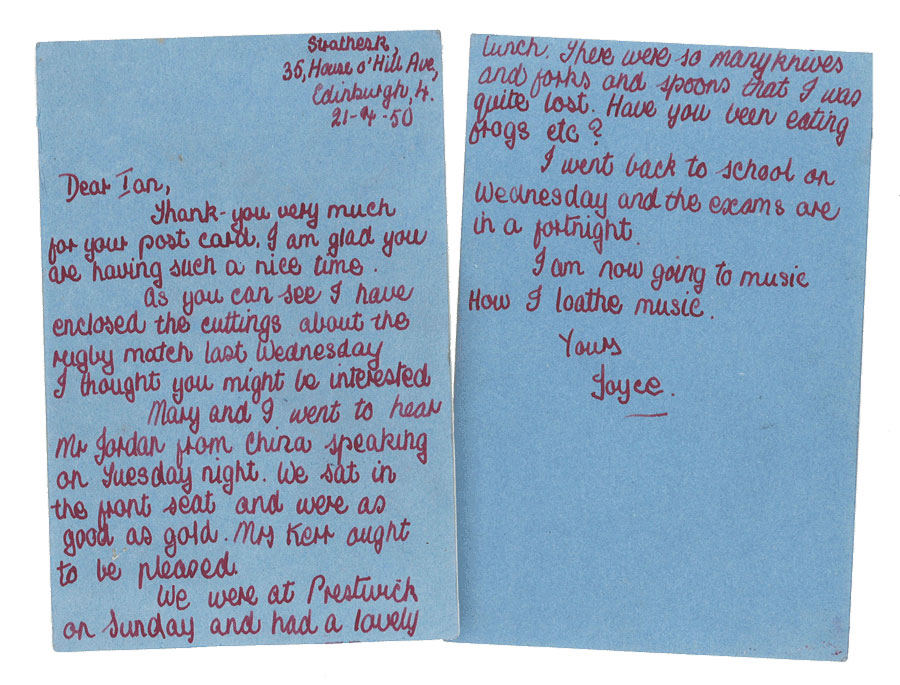 Strathesk,
36, House o' Hill Ave,
Edinburgh, 4.
21-4-50
Dear Ian,
Thank-you very much
for your post card. I am glad you
are having such a nice time.
As you can see I have
enclosed the cuttings about the
rugby match last Wednesday
I thought you might be interested
Mary and I went to hear
Mr Jordan from China speaking
on Tuesday night. We sat in
the front seat and were as
good as gold. Mrs Kerr ought
to be pleased.
We were at Prestwick
on Sunday and had a lovely
lunch. There were so many knives
and forks and spoons that I was
quite lost. Have you been eating
frogs etc?
I went back to school on
Wednesday and the exams are
in a fortnight.
I am now going to music
How I loathe music.
Yours
Joyce.